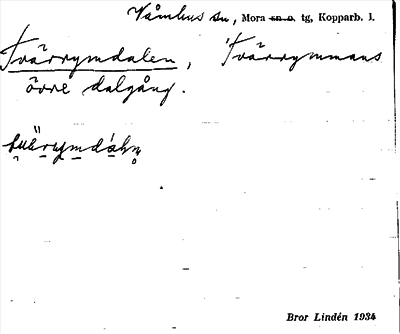 Våmhus sn, Mora sn o. tg, Kopparb. l.
Tvärrymdalen, Tvärrymmans
övre dalgång.
Bror Lindén 1934